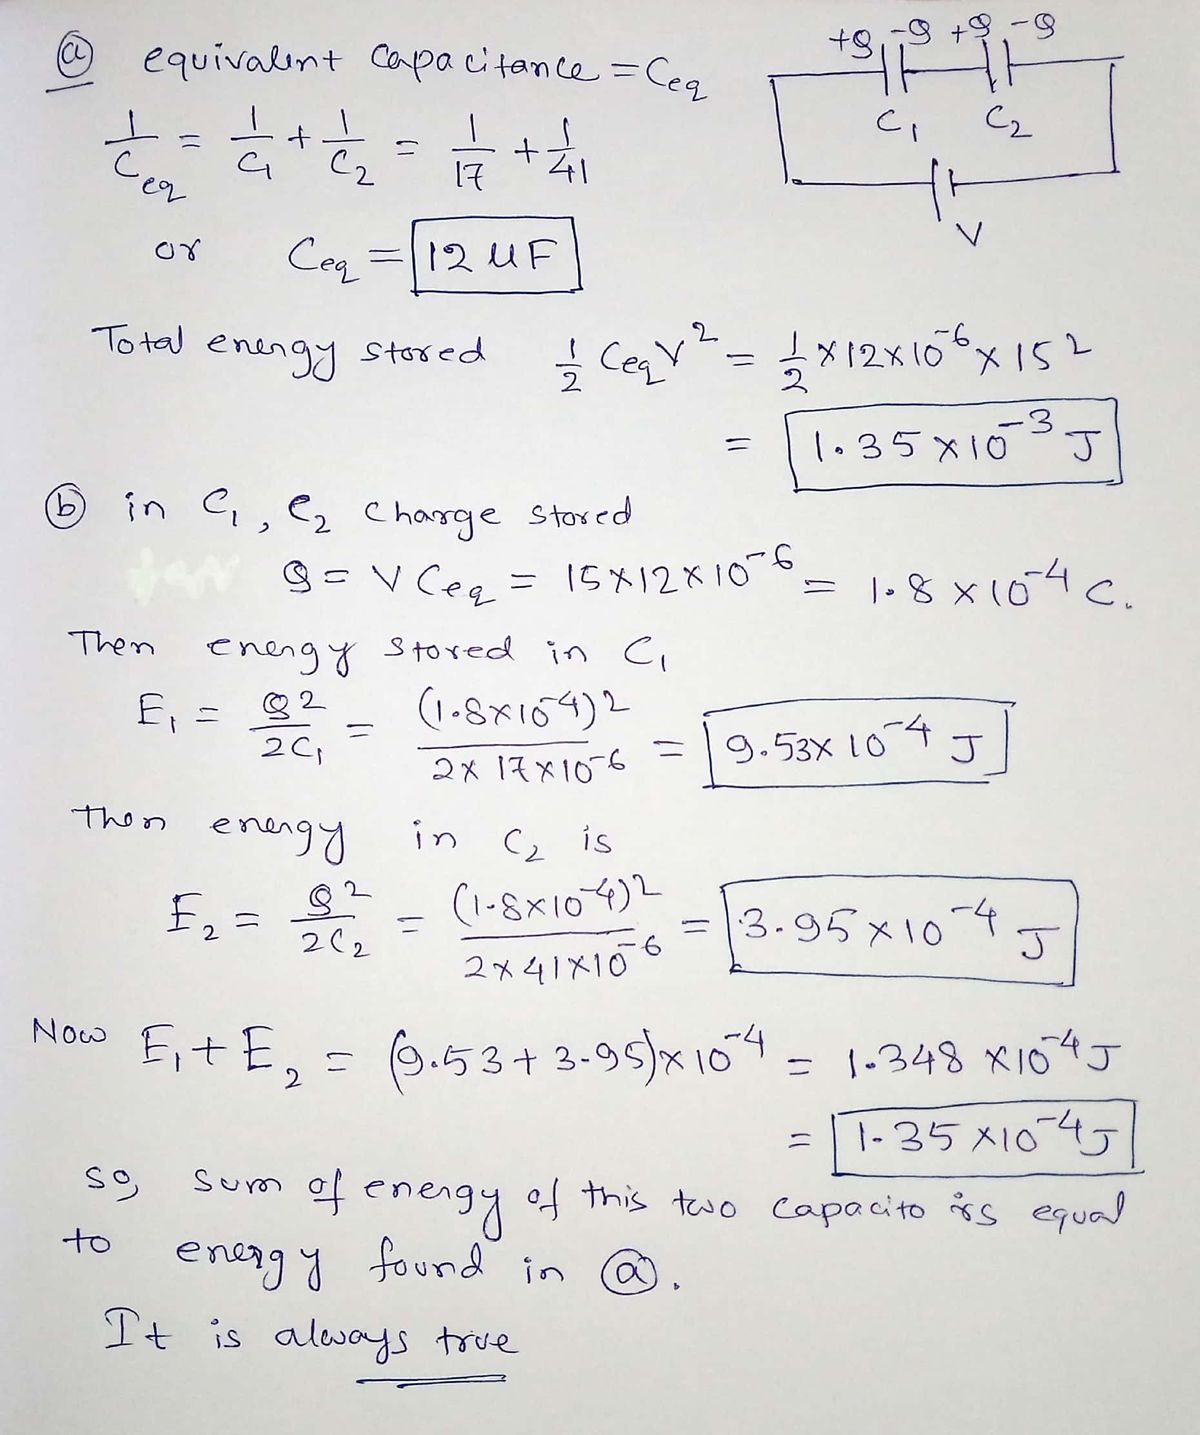 +Q -Q +Q -Q
C₁ C₂
V
(a) equivalent capacitance = Ceq
1/Ceq = 1/C₁ + 1/C₂ = 1/17 + 1/41
or Ceq = 12 μF
Total energy stored 1/2 Ceq V² = 1/2 × 12 × 10⁻⁶ × 15²
= 1.35 × 10⁻³ J
(b) in C₁, C₂ charge stored
Q = V Ceq = 15 × 12 × 10⁻⁶ = 1.8 × 10⁻⁴ C.
Then energy stored in C₁
E₁ = Q²/2C₁ = (1.8×10⁻⁴)²/2×17×10⁻⁶ = 9.53 × 10⁻⁴ J
then energy in C₂ is
E₂ = Q²/2C₂ = (1.8×10⁻⁴)²/2×41×10⁻⁶ = 3.95 × 10⁻⁴ J
Now E₁ + E₂ = (9.53 + 3.95) × 10⁻⁴ = 1.348 × 10⁻⁴ J
= 1.35 × 10⁻⁴ J
so, sum of energy of this two capacito irs equal
to energy found in (a).
It is always true